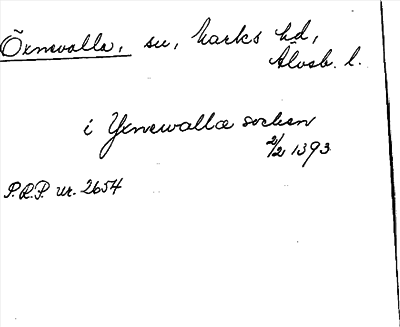 Öxnevalla, sn, Marks hd,
Älvsb. l.
i Yxnewalla sochen
2/2 1393
P.R.P. nr. 2654